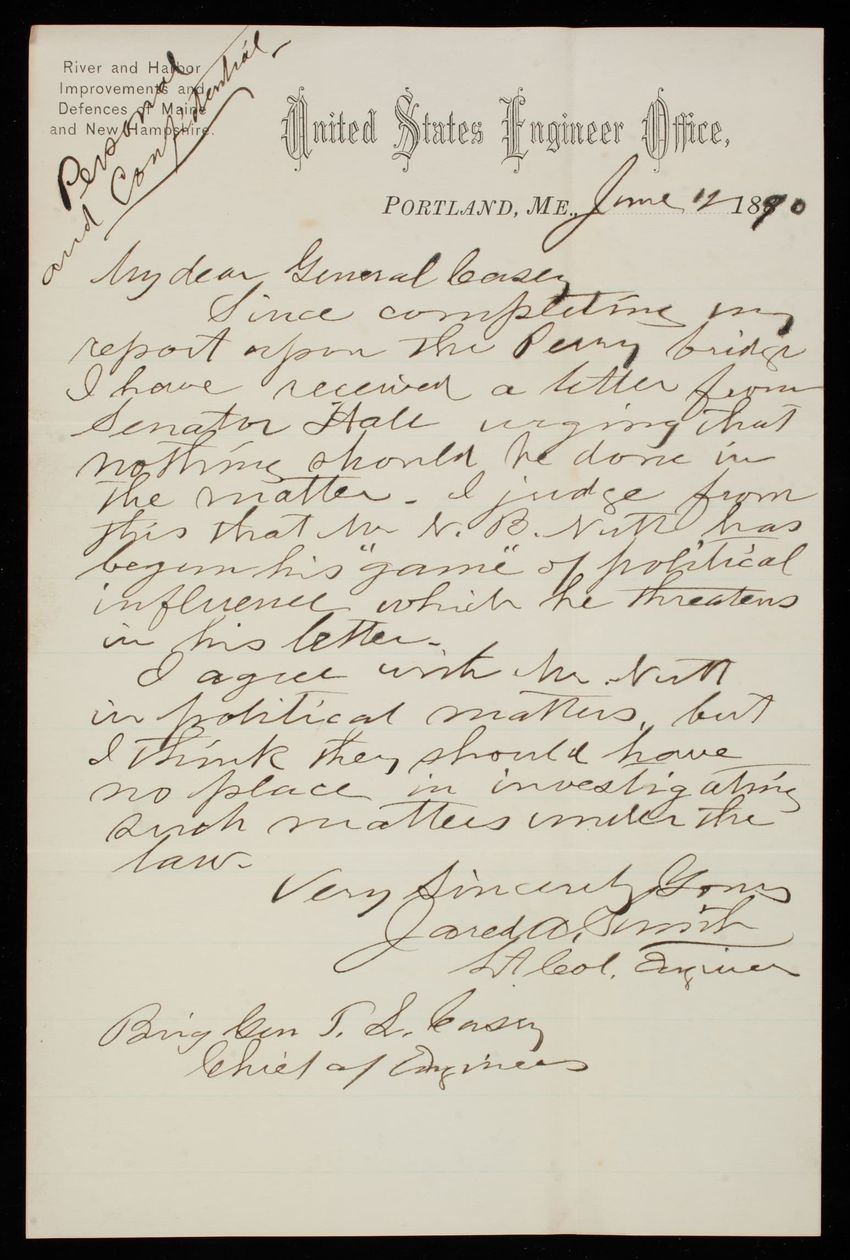 River and Harbor
Improvements and
Defences of Maine
and New Hampshire.
Personal
and Confidential
United States Engineer Office,
PORTLAND, ME., June 12 1890
My dear General Casey
Since completing my
report upon the Perry bridge
I have received a letter from
Senator Hale urging that
nothing should be done in
the matter - I judge from
this that Mr N. B. Nutt has
begun his "game" of political
influence which he threatens
in his letter -
I agree with Mr. Nutt
in political matters, but
I think they should have
no place in investigating
such matters under the
law -
Very Sincerely Yours
Jared A. Smith
Lt Col. Engineer
Brig Gen T. L. Casey
Chief of Engineers